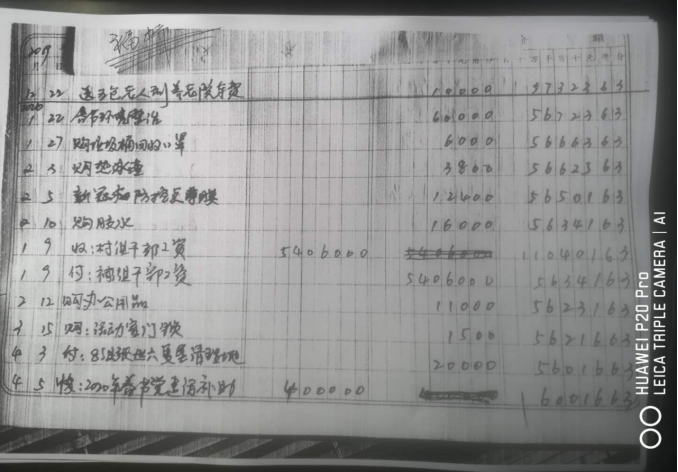 2019
12 22 送五包老人到养老院车费 10000 5732363
2020
1 22 春节环境整治 60000 5672363
1 27 购垃圾桶 口罩 6000 5666363
2 3 购热水 3800 5662563
2 5 新冠 防控 12400 5650163
2 10 购胶水 16000 5634163
1 9 收:村组干部工资 5406000 11040163
1 9 付:村组干部工资 5406000 5634163
2 12 购办公用品 11000 5623163
3 15 购:活动室门锁 1500 5621663
4 3 付: 20000 5601663
4 5 收:2020年春节党建活补助 400000 6001663
HUAWEI P20 Pro
LEICA TRIPLE CAMERA | AI